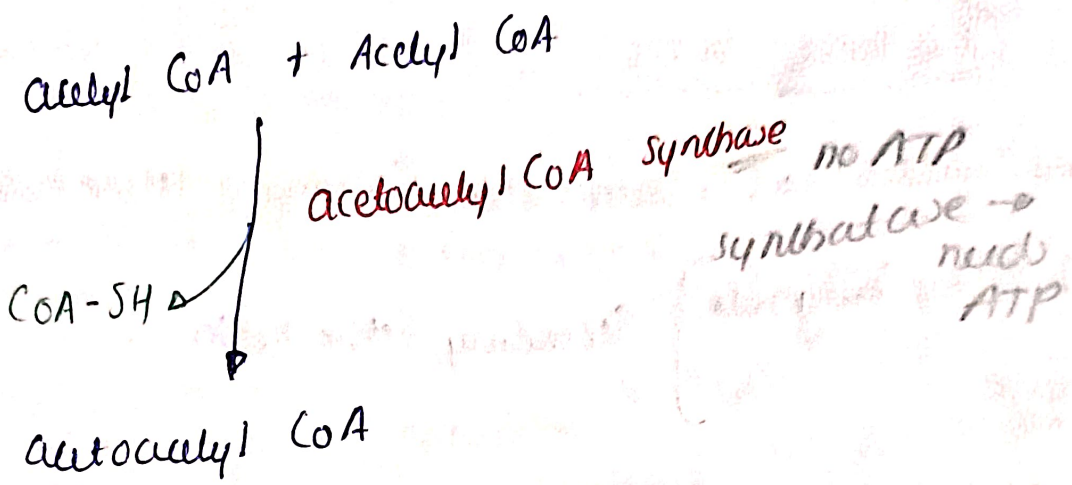 acetyl CoA + Acetyl CoA
acetoacetyl CoA synthase no ATP
synthatase →
needs
ATP
CoA-SH
acetoacetyl CoA